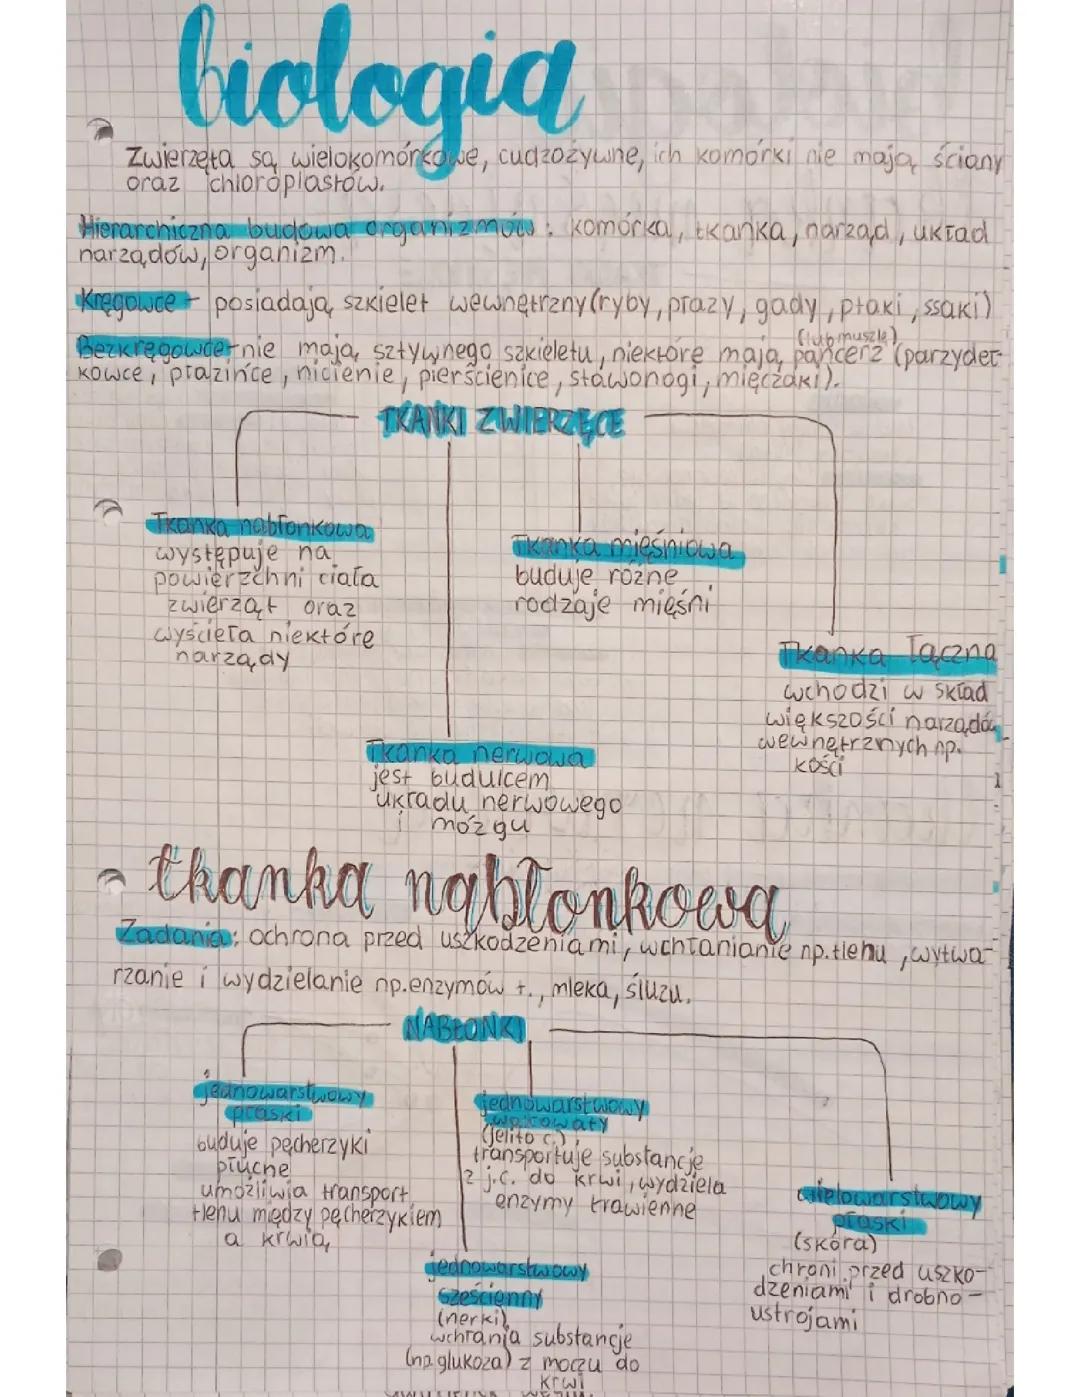 biologia
Zwierzęta są wielokomórkowe, cudzożywne, ich komórki nie mają ściany
oraz chloroplastów.
Hierarchiczna budowa organizmów: komórka, tkanka, narząd, układ
narządów, organizm.
Kręgowce - posiadają szkielet wewnętrzny (ryby, płazy, gady, ptaki, ssaki)
(lub muszle)
Bezkręgowce - nie mają sztywnego szkieletu, niektóre mają pancerz (parzydeł-
kowce, płazińce, nicienie, pierścienice, stawonogi, mięczaki).
TKANKI ZWIERZĘCE
Tkanka nabłonkowa
występuje na
powierzchni ciała
zwierząt oraz
wyścieła niektóre
narządy
Tkanka mięśniowa
buduje różne
rodzaje mięśni
Tkanka łączna
wchodzi w skład
większości narządów
wewnętrznych np.
kości
Tkanka nerwowa
jest budulcem
układu nerwowego
i mózgu
tkanka nabłonkowa
Zadania: ochrona przed uszkodzeniami, wchłanianie np. tlenu, wytwa-
rzanie i wydzielanie np. enzymów t., mleka, śluzu.
NABŁONKI
jednowarstwowy
płaski
buduje pęcherzyki
płucne
umożliwia transport
tlenu między pęcherzykiem
a krwią
jednowarstwowy
walcowaty
(jelito c.),
transportuje substancje
z j.c. do krwi, wydziela
enzymy trawienne
wielowarstwowy
płaski
(skóra)
chroni przed uszko-
dzeniami i drobno-
ustrojami
jednowarstwowy
sześcienny
(nerki)
wchłania substancje
(np. glukoza) z moczu do
krwi